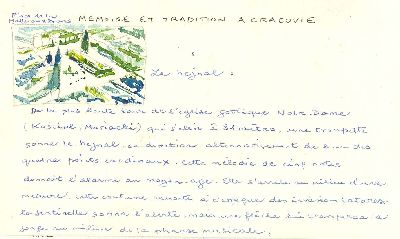 MEMOIRE ET TRADITION A CRACOVIE
Le hejnal :
De la plus haute tour de l'église gothique Notre-Dame
(Kosciol Mariacki) qui s'élève à 81 mètres, une trompette
sonne le hejnal en direction alternativement de l'un des
quatre points cardinaux. Cette mélodie de cinq notes
donnait l'alarme au moyen-age. Elle s'arrête au milieu d'une
mesure, interrompue ensuite
la sentinelle sonna l'alerte mais une flèche lui transperça la
gorge au milieu de la phrase musicale.